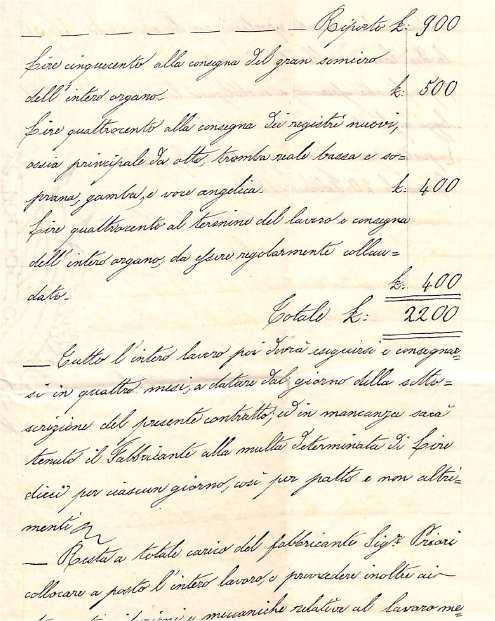 — — — — — — — Riporto £. 900
Lire cinquecento alla consegna del gran somiero
dell'intero organo. £. 500
Lire quattrocento alla consegna dei registri nuovi,
ossia principale da otto, tromba reale bassa e so=
prana, gamba, e voce angelica. £. 400
Lire quattrocento al termine del lavoro e consegna
dell'intero organo, da essere regolarmente collau=
dato. £. 400
Totale £: 2200
— Tutto l'intero lavoro poi dovrà eseguirsi e consegnar=
si in quattro mesi, a datare dal giorno della sotto=
scrizione del presente contratto; ed in mancanza sarà
tenuto il Fabbricante alla multa determinata di Lire
dieci per ciascun giorno, così per patto e non altri=
menti
— Resta a totale carico del fabbricante Sigr. Priori
collocare a posto l'intero lavoro, e provvedere inoltre ai
e meccaniche relative al lavoro me=